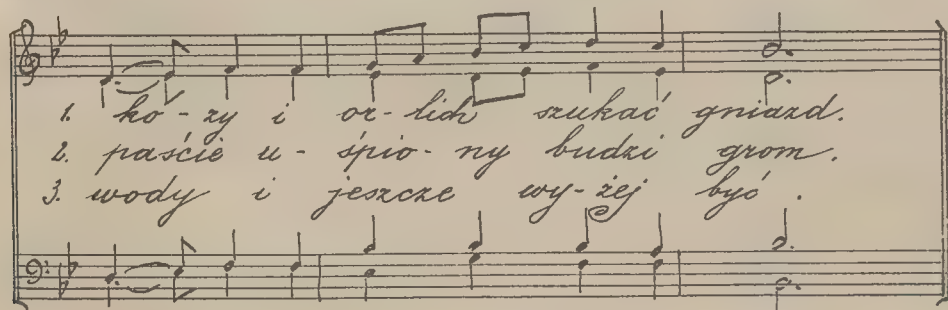 1. ko-zy i or-lich szukać gniazd.
2. paście u-śpio-ny budzi grom.
3. wody i jeszcze wy-żej być.